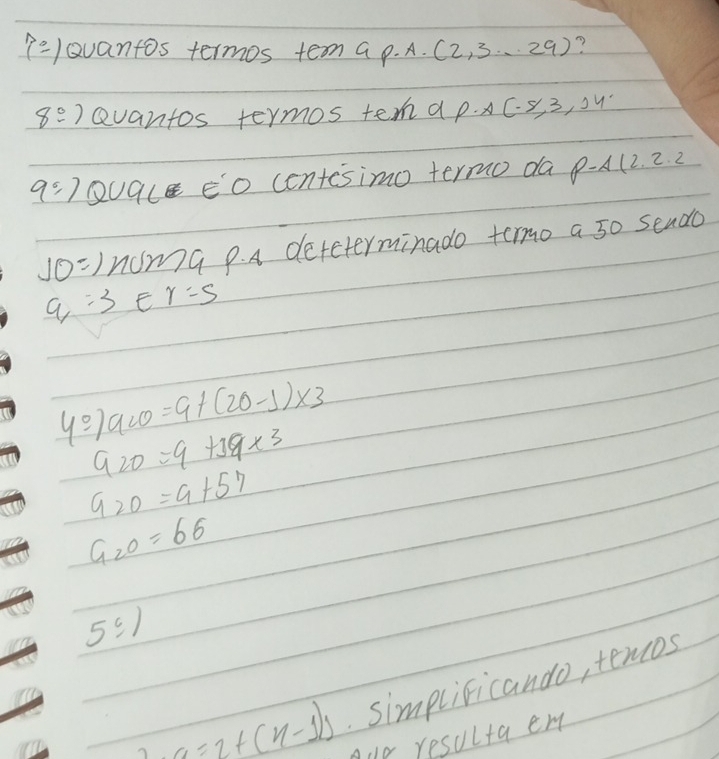 7º) Quantos termos tem a p.A. (2,3...29)?
8º) Quantos termos tem a p.A (-8,3,14.
9º) Qual é o centésimo termo da p-A (2.2.2
10º) numa p.A deteterminado termo a 50 sendo
a, =3 E r=5
4º) a20 = 9+(20-1)×3
a20 = 9 +19×3
a20 = 9+57
a20 = 66
5º)
a=2+(n-1). simplificando, temos
que resulta em